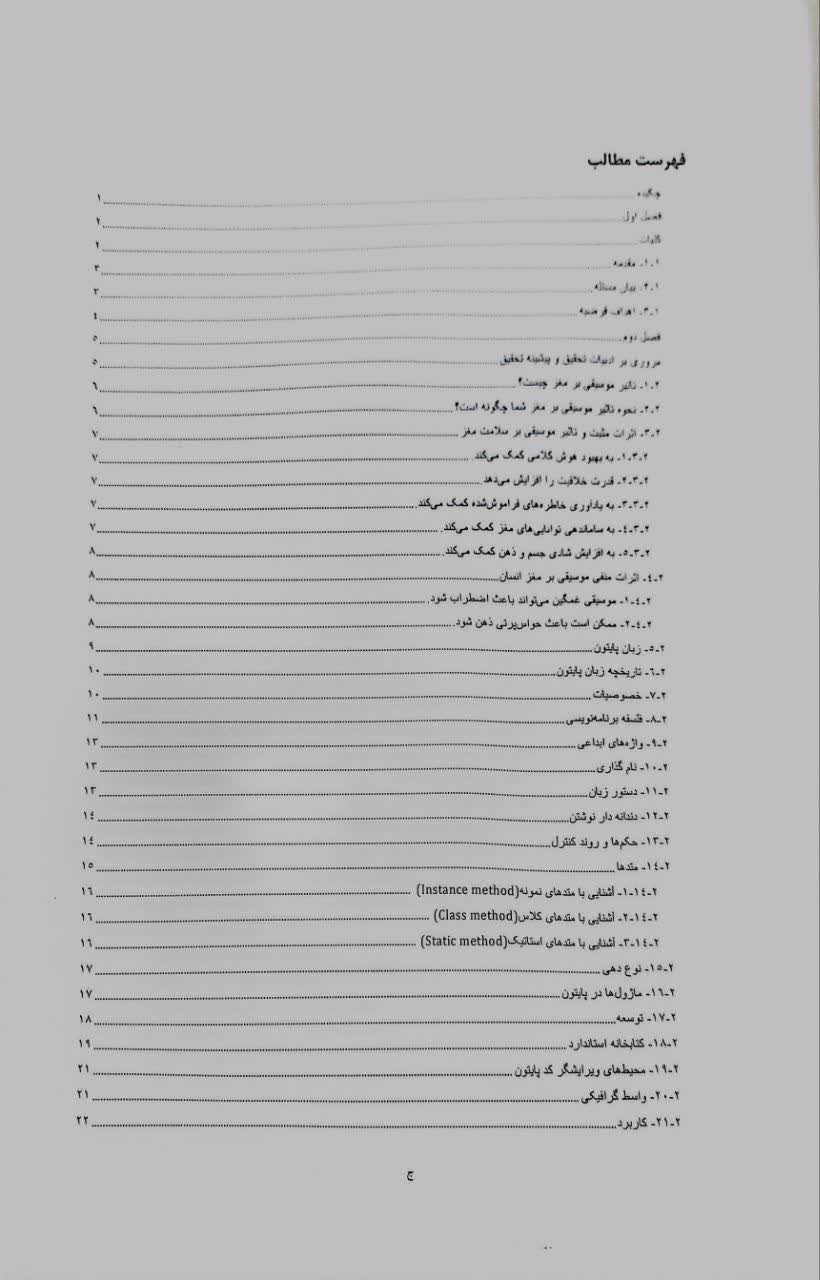 فهرست مطالب
چکیده ............ ۱
فصل اول ............ ۲
کلیات ............ ۲
۱-۱- مقدمه ............ ۳
۱-۲- بیان مسئله ............ ۳
۱-۳- اهداف فرضیه ............ ٤
فصل دوم ............ ۵
مروری بر ادبیات تحقیق و پیشینه تحقیق ............ ۵
۲-۱- تاثیر موسیقی بر مغز چیست؟ ............ ٦
۲-۲- نحوه تاثیر موسیقی بر مغز شما چگونه است؟ ............ ٦
۲-۳- اثرات مثبت و تاثیر موسیقی بر سلامت مغز ............ ۷
۲-۳-۱- به بهبود هوش کلامی کمک می‌کند. ............ ۷
۲-۳-۲- قدرت خلاقیت را افزایش می‌دهد ............ ۷
۲-۳-۳- به یادآوری خاطره‌های فراموش‌شده کمک می‌کند. ............ ۷
۲-۳-٤- به ساماندهی توانایی‌های مغز کمک می‌کند. ............ ۷
۲-۳-۵- به افزایش شادی جسم و ذهن کمک می‌کند. ............ ۸
۲-٤- اثرات منفی موسیقی بر مغز انسان ............ ۸
۲-٤-۱- موسیقی غمگین می‌تواند باعث اضطراب شود. ............ ۸
۲-٤-۲- ممکن است باعث حواس‌پرتی ذهن شود. ............ ۸
۲-۵- زبان پایتون ............ ۹
۲-٦- تاریخچه زبان پایتون ............ ۱۰
۲-۷- خصوصیات ............ ۱۰
۲-۸- فلسفه برنامه‌نویسی ............ ۱۱
۲-۹- واژه‌های ابداعی ............ ۱۳
۲-۱۰- نام گذاری ............ ۱۳
۲-۱۱- دستور زبان ............ ۱۳
۲-۱۲- دندانه دار نوشتن ............ ۱٤
۲-۱۳- حکم‌ها و روند کنترل ............ ۱٤
۲-۱٤- متدها ............ ۱۵
۲-۱٤-۱- آشنایی با متدهای نمونه(Instance method) ............ ۱٦
۲-۱٤-۲- آشنایی با متدهای کلاس(Class method) ............ ۱٦
۲-۱٤-۳- آشنایی با متدهای استاتیک(Static method) ............ ۱٦
۲-۱۵- نوع دهی ............ ۱۷
۲-۱٦- ماژول‌ها در پایتون ............ ۱۷
۲-۱۷- توسعه ............ ۱۸
۲-۱۸- کتابخانه استاندارد ............ ۱۹
۲-۱۹- محیط‌های ویرایشگر کد پایتون ............ ۲۱
۲-۲۰- واسط گرافیکی ............ ۲۱
۲-۲۱- کاربرد ............ ۲۲
ج